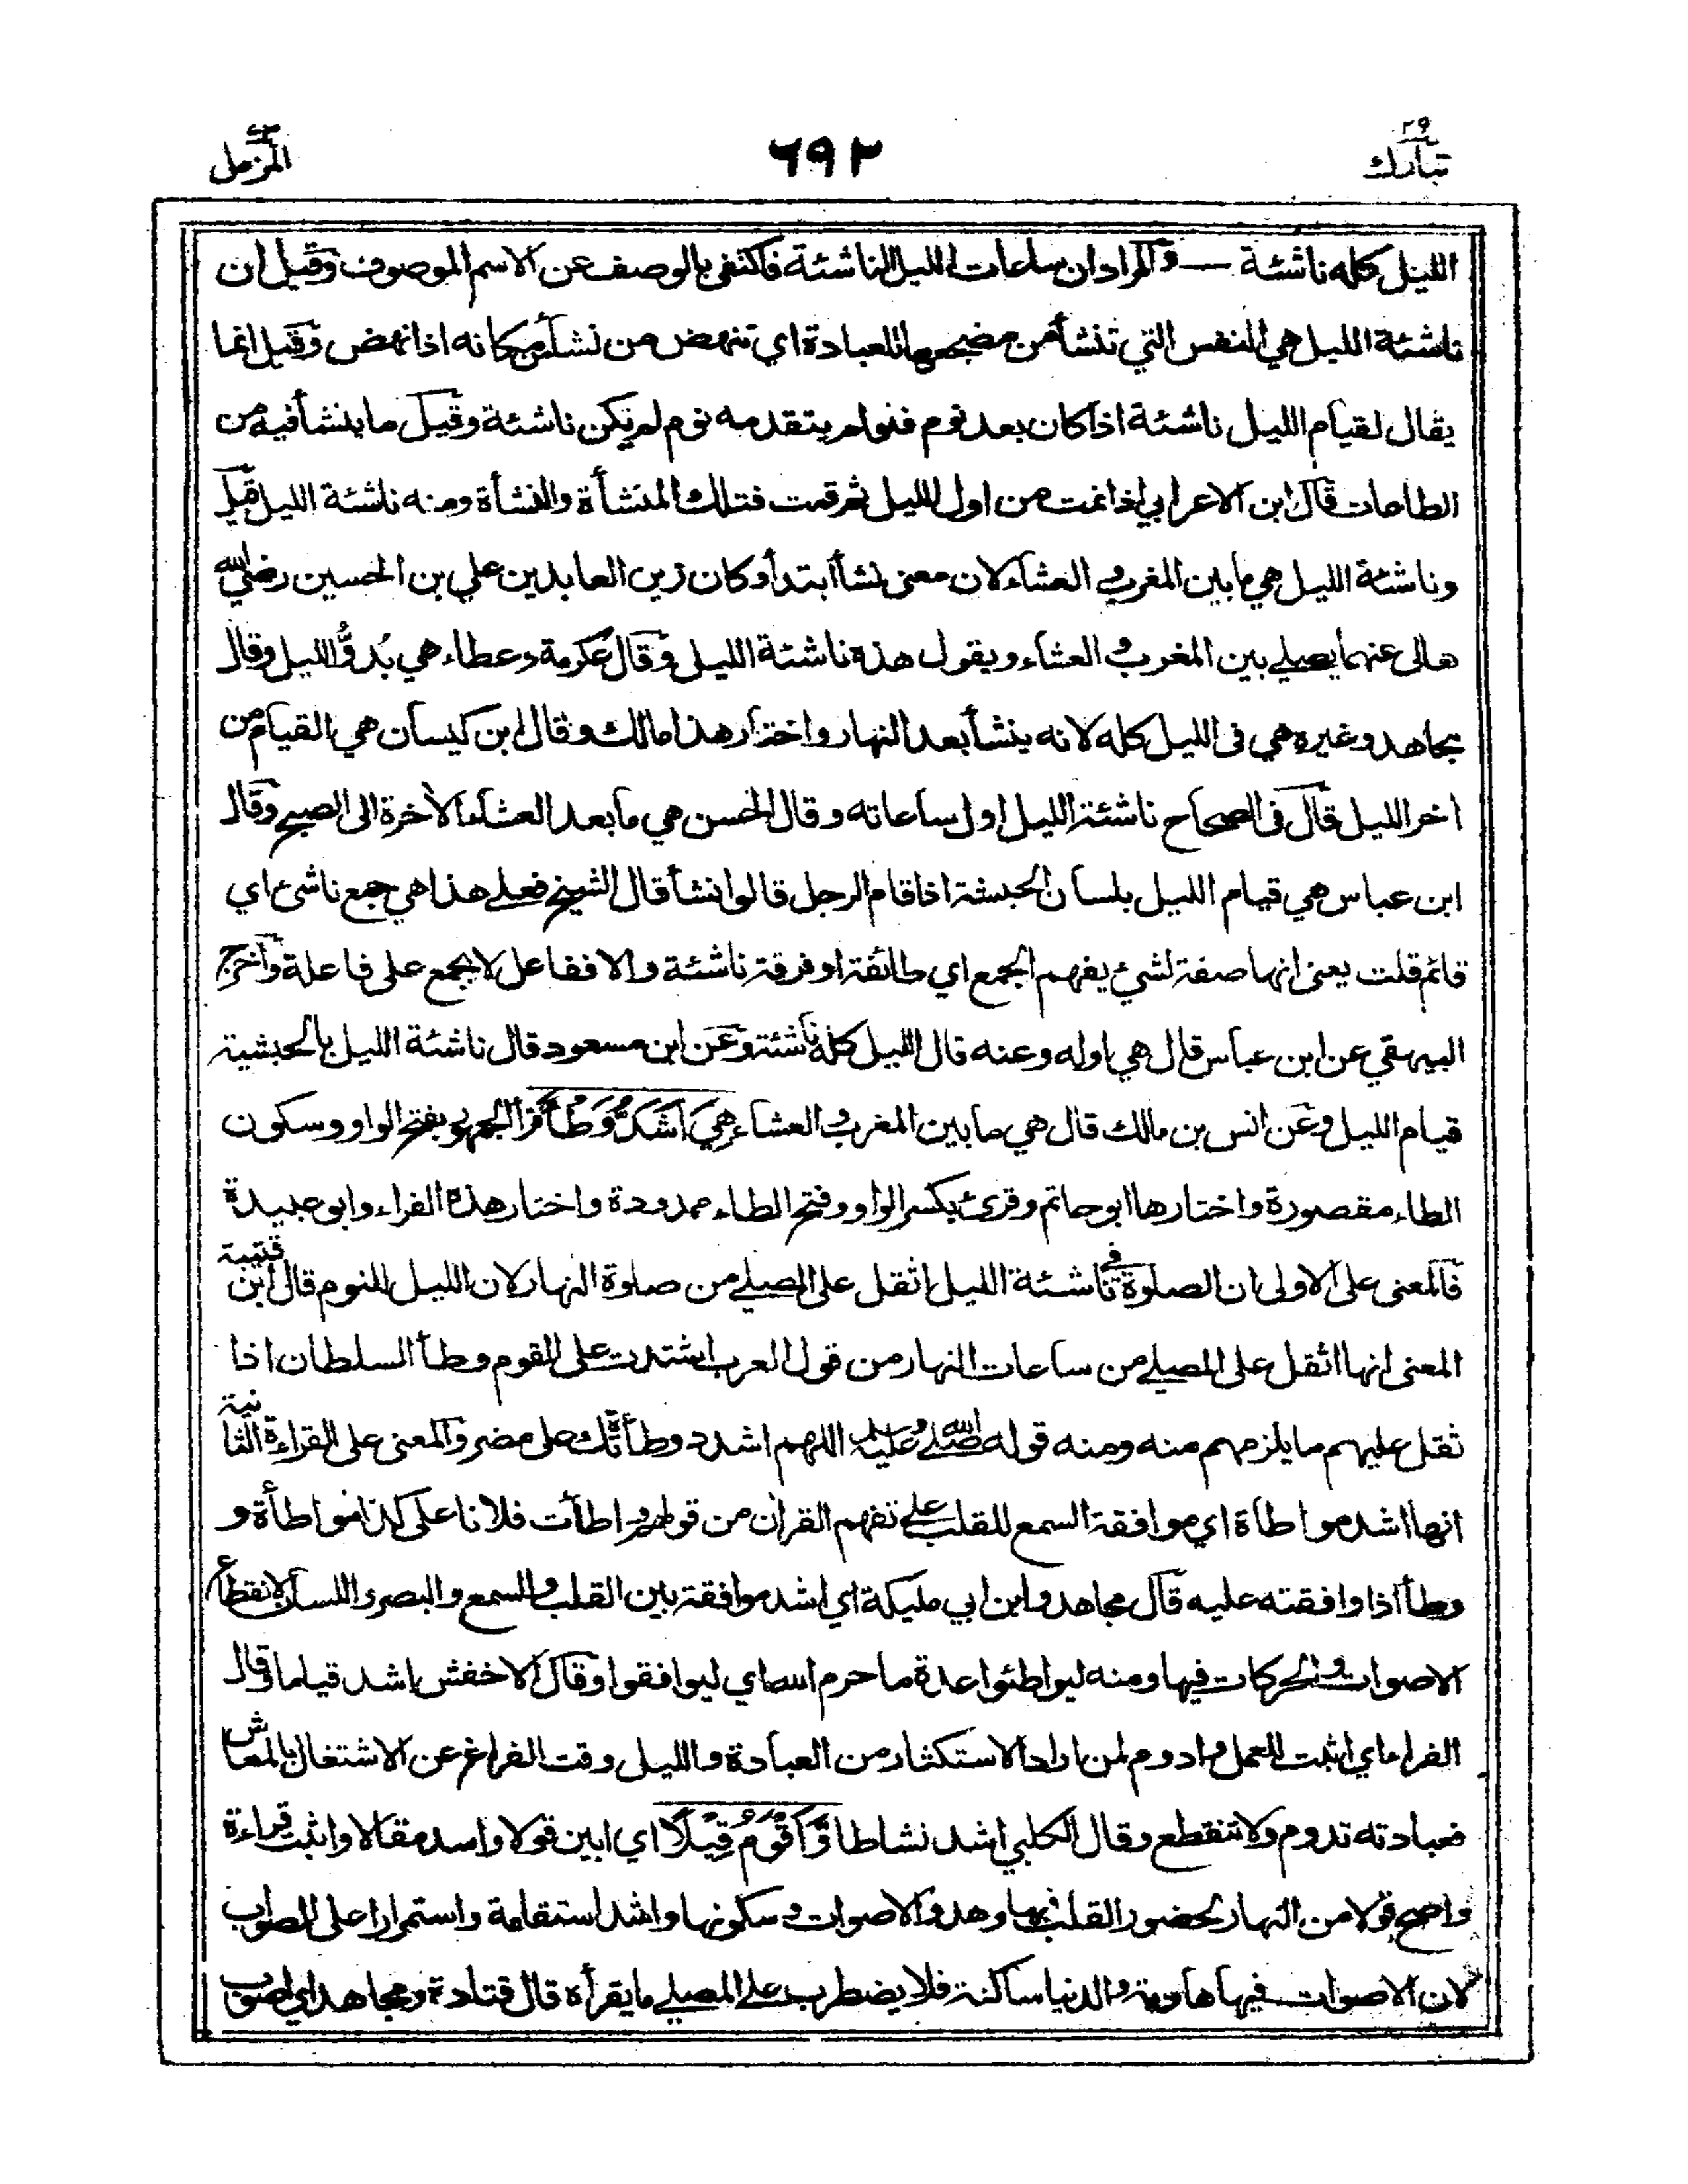 تبارك ٢٩
٦٩٢
المزمل ٧٣
الليل كله ناشئة — والمراد ان ساعات الليل الناشئة فاكتفى بالوصف عن الاسم الموصوف وقيل ان
ناشئة الليل هي النفس التي تنشأ من مضجعها للعبادة اي تنهض من نشأ من مكانه اذا نهض وقيل انما
يقال لقيام الليل ناشئة اذا كان بعد نوم فلو لم يتقدمه نوم لم يكن ناشئة وقيل ما ينشأ فيه من
الطاعات قال ابن الاعرابي اذا نمت من اول الليل ثم قمت فتلك المنشأة والنشأة ومنه ناشئة الليل قيل
وناشئة الليل هي ما بين المغرب والعشاء لان معنى نشأ ابتدأ وكان زين العابدين علي بن الحسين رضي الله
تعالى عنهما يصلي بين المغرب والعشاء ويقول هذه ناشئة الليل وقال عكرمة وعطاء هي بُدوُّ الليل وقال
مجاهد وغيره هي فى الليل كله لانه ينشأ بعد النهار واختار هذا مالك وقال ابن كيسان هي القيام من
اخر الليل قال فى الصحاح ناشئة الليل اول ساعاته وقال الحسن هي ما بعد العشاء الاخرة الى الصبح وقال
ابن عباس هي قيام الليل بلسان الحبشة اذا قام الرجل قالوا نشأ قال الشيخ فعلى هذا هي جمع ناشئ اي
قائم قلت يعنى انها صفة لشئ يفهم الجمع اي طائفة او فرقة ناشئة والا ففاعل لا يجمع على فاعلة واخرج
البيهقي عن ابن عباس قال هي اوله وعنه قال الليل كله ناشئة وعن ابن مسعود قال ناشئة الليل بالحبشية
قيام الليل وعن انس بن مالك قال هي ما بين المغرب والعشاء هِيَ اَشَدُّ وَطْأً قرأ الجمهور بفتح الواو وسكون
الطاء مقصورة واختارها ابو حاتم وقرئ بكسر الواو وفتح الطاء ممدودة واختار هذه الفراء وابو عبيدة
فالمعنى على الاولى ان الصلوة في ناشئة الليل اثقل على المصلي من صلوة النهار لان الليل للنوم قال ابن قتيبة
المعنى انها اثقل على المصلي من ساعات النهار من قول العرب اشتدت على القوم وطأ السلطان اذا
ثقل عليهم ما يلزمهم منه ومنه قوله صلى الله عليه وسلم اللهم اشدد وطأتك على مضر والمعنى على القراءة الثانية
انها اشد مواطاة اي موافقة السمع للقلب على تفهم القران من قولهم واطأت فلانا على كذا مواطأة و
وطأ اذا وافقته عليه قال مجاهد وابن ابي مليكة اي اشد موافقة بين القلب والسمع والبصر واللسان لانقطاع
الاصوات والحركات فيها ومنه ليواطئوا عدة ما حرم الله اي ليوافقوا وقال الاخفش اشد قياما وقال
الفراء اي اثبت للعمل وادوم لمن اراد الاستكثار من العبادة والليل وقت الفراغ عن الاشتغال بالمعاش
فعبادته تدوم ولا تنقطع وقال الكلبي اشد نشاطا وَّاَقْوَمُ قِيْلًا اي ابين قولا واسد مقالا واثبت قراءة
واصح قولا من النهار لحضور القلب فيها وهدو الاصوات وسكونها واشد استقامة واستمرارا على الصواب
لان الاصوات فيها هادية والدنيا ساكنة فلا يضطرب على المصلي ما يقرأه قال قتادة ومجاهد اي اصوب